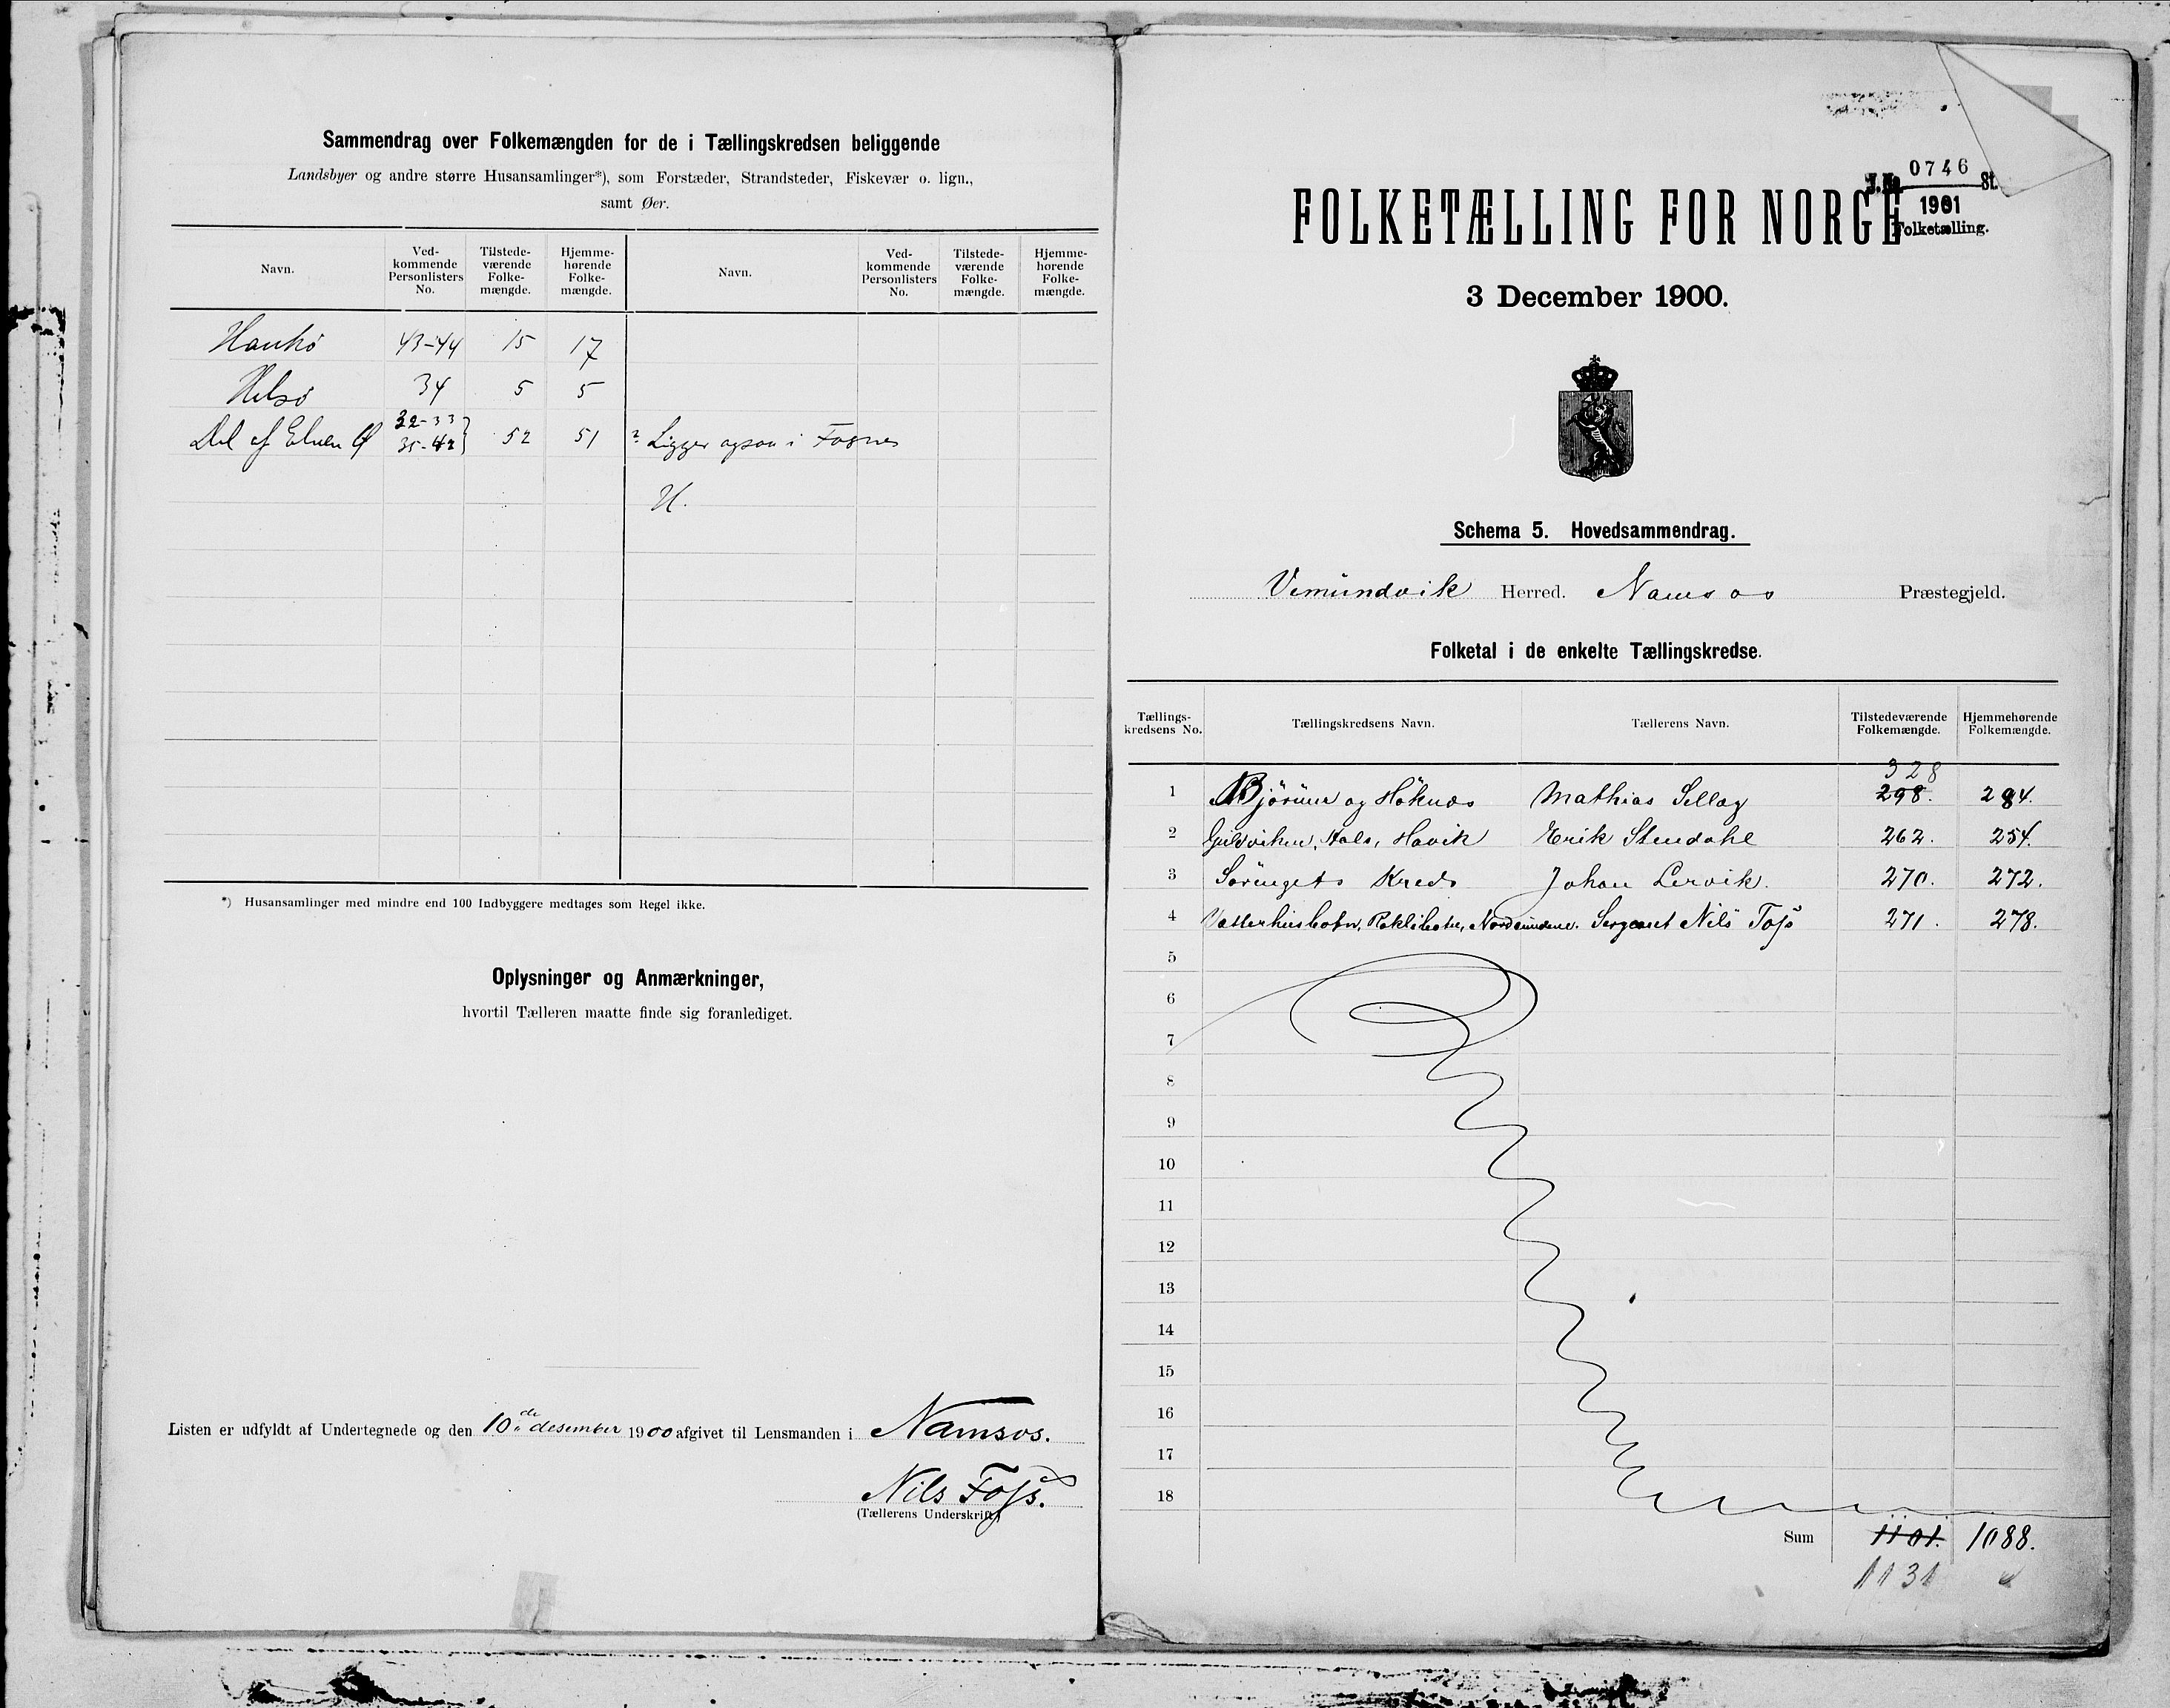 Sammendrag over Folkemængden for de i Tællingskredsen beliggende
Landsbyer og andre større Husansamlinger*), som Forstæder, Strandsteder, Fiskevær o. lign.,
samt Øer.
Navn. Ved-kommende Personlisters No. Tilstede-værende Folke-mængde. Hjemme-hørende Folke-mængde. Navn. Ved-kommende Personlisters No. Tilstede-værende Folke-mængde. Hjemme-hørende Folke-mængde.
43-44 15 17
34 5 5
32-33
Del af Elven Ø 35-42 52 51 Ligger ogsaa i Fosnes
H.
*) Husansamlinger med mindre end 100 Indbyggere medtages som Regel ikke.
Oplysninger og Anmærkninger,
hvortil Tælleren maatte finde sig foranlediget.
Listen er udfyldt af Undertegnede og den 10de desember 1900 afgivet til Lensmanden i Namsos.
Nils Foss.
(Tællerens Underskrift)
J.No 0746 St.
1901
Folketælling.
FOLKETÆLLING FOR NORGE
3 December 1900.
Schema 5. Hovedsammendrag.
Vemundvik Herred. Namsos Præstegjeld.
Folketal i de enkelte Tællingskredse.
Tællings-kredsens No. Tællingskredsens Navn. Tællerens Navn. Tilstedeværende Folkemængde. Hjemmehørende Folkemængde.
328
1 Bjørum og Høknes Mathias Sellæg 298. 284.
2 Hals, Havik Erik Stendahl 262. 254.
3 Kreds Johan Lervik. 270. 272.
4 Sergeant Nils Foss 271. 278.
5
6
7
8
9
10
11
12
13
14
15
16
17
18
Sum 1101. 1088.
1131